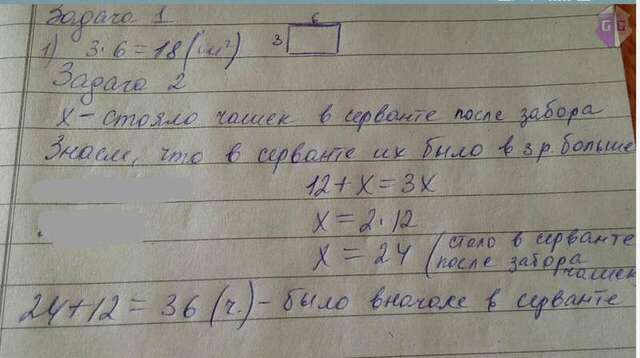 Задача 1
1) 3·6=18(см²) 3 6
Задача 2
х – стояло чашек в серванте после забора
Знаем, что в серванте их было в 3 р. больше
12+х=3х
х=2·12
х=24 (стало в серванте
после забора
чашек
24+12=36(ч.) – было вначале в серванте